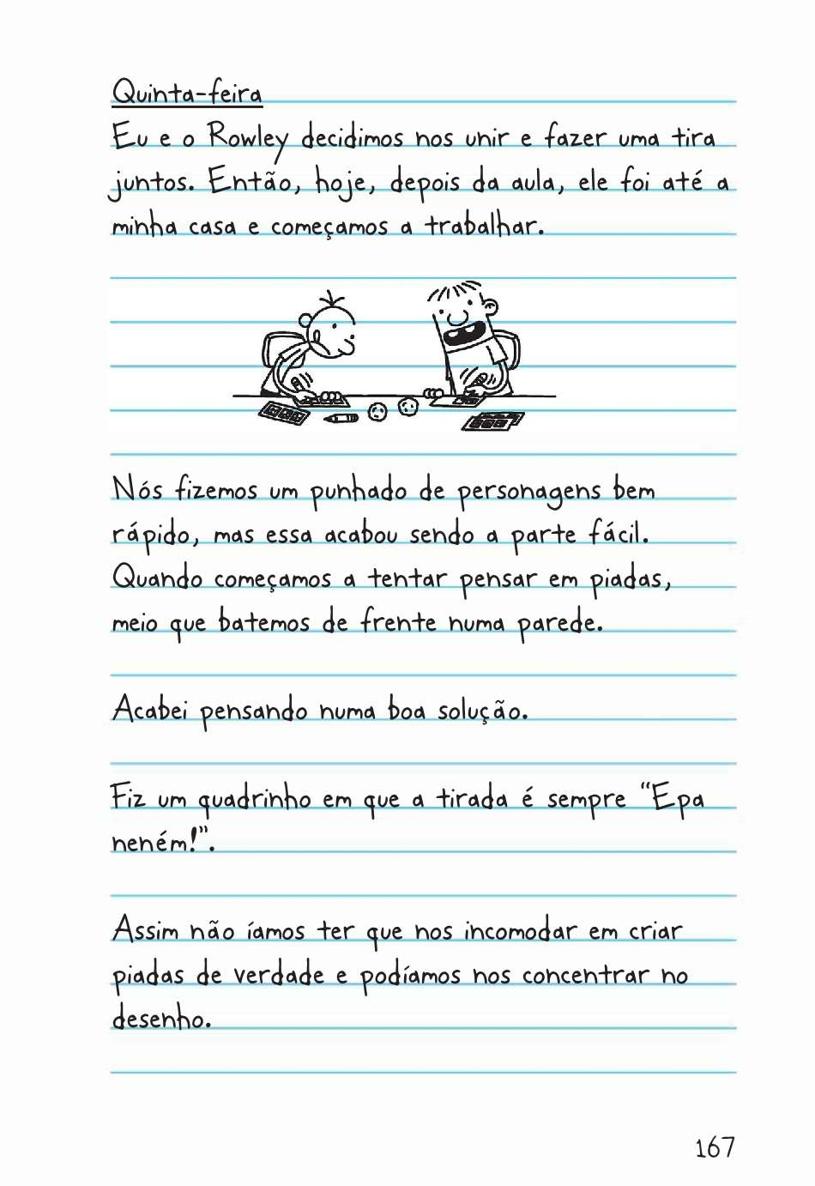 Quinta-feira
Eu e o Rowley decidimos nos unir e fazer uma tira
juntos. Então, hoje, depois da aula, ele foi até a
minha casa e começamos a trabalhar.
Nós fizemos um punhado de personagens bem
rápido, mas essa acabou sendo a parte fácil.
Quando começamos a tentar pensar em piadas,
meio que batemos de frente numa parede.
Acabei pensando numa boa solução.
Fiz um quadrinho em que a tirada é sempre “Epa
neném!”.
Assim não íamos ter que nos incomodar em criar
piadas de verdade e podíamos nos concentrar no
desenho.
167